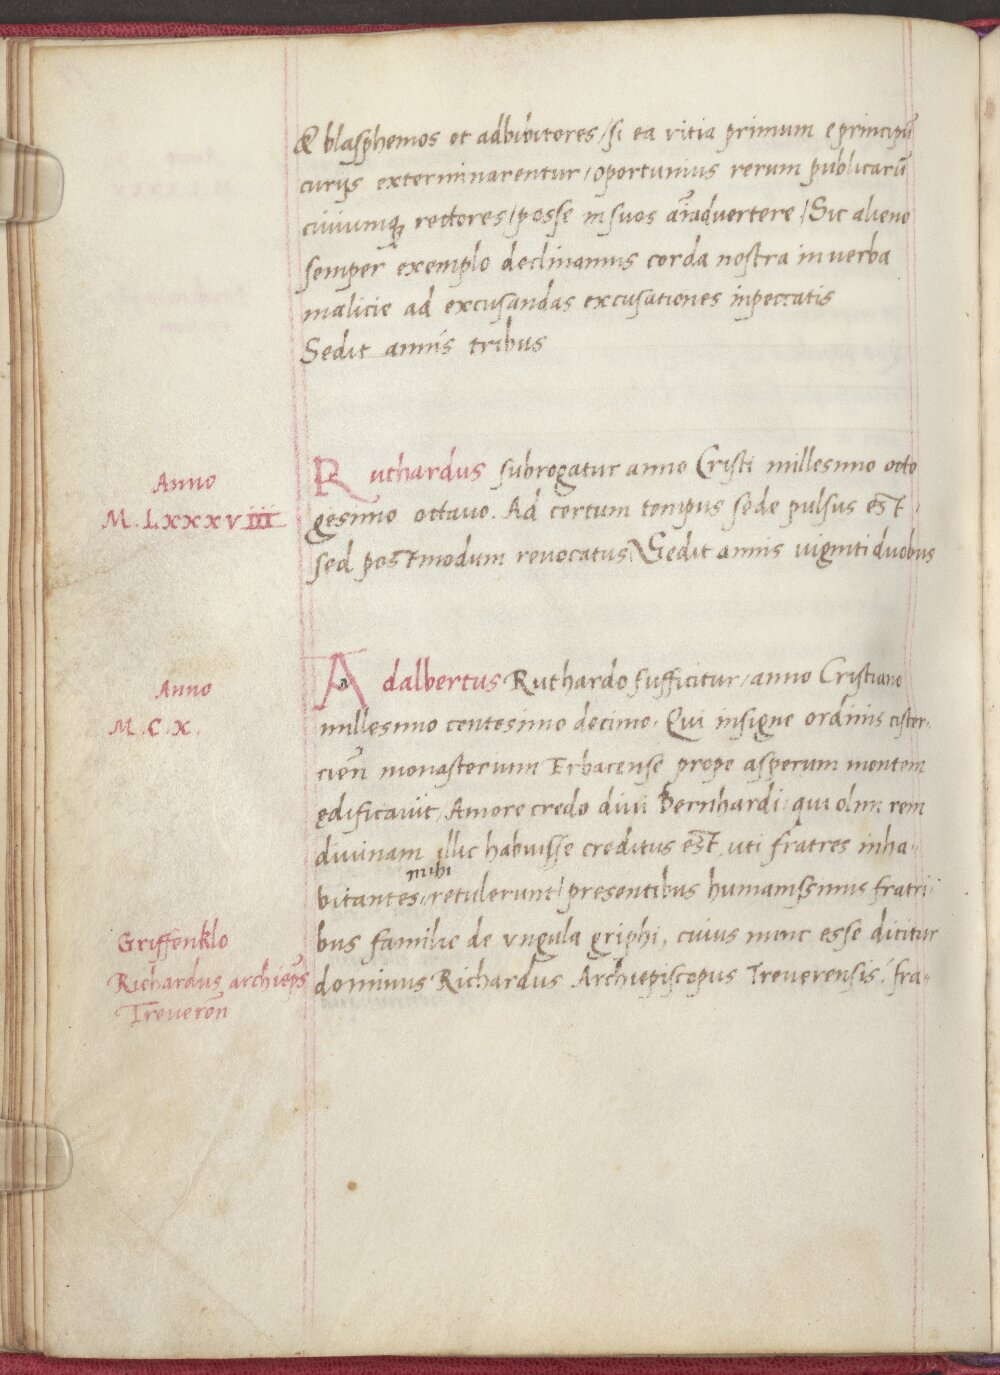 & blasphemos et adbibitores / si ea vitia primum e principũ
curijs exterminarentur / oportunius rerum publicarũ
ciuiumqȝ rectores / posse in suos aĩaduertere / Sic alieno
semper exemplo declinamus corda nostra in verba
malicie ad excusandas excusationes in peccatis
Sedit annis tribus
Anno
M.LXXXVIII
Ruthardus subrogatur anno Cristi millesimo octo
gesimo octauo. Ad certum tempus sede pulsus est.
sed postmodum reuocatus / Sedit annis viginti duobus
Anno
M.C.X.
Adalbertus Ruthardo sufficitur / anno Cristiano
millesimo centesimo decimo. Qui insigne ordinis cister-
cieñ monasterium Erbacense prope asperum montem
ędificauit / Amore credo diui Bernhardi: qui olim rem
diuinam illic habuisse creditus est, uti fratres inha-
bitantes mihi retulerunt / presentibus humanissimis fratri-
bus familię de vngula griphi, cuius nunc esse dicitur
dominus Richardus Archiepiscopus Treuerensis: fra-
Griffenklo
Richardus archiep̃s
Treueroñ